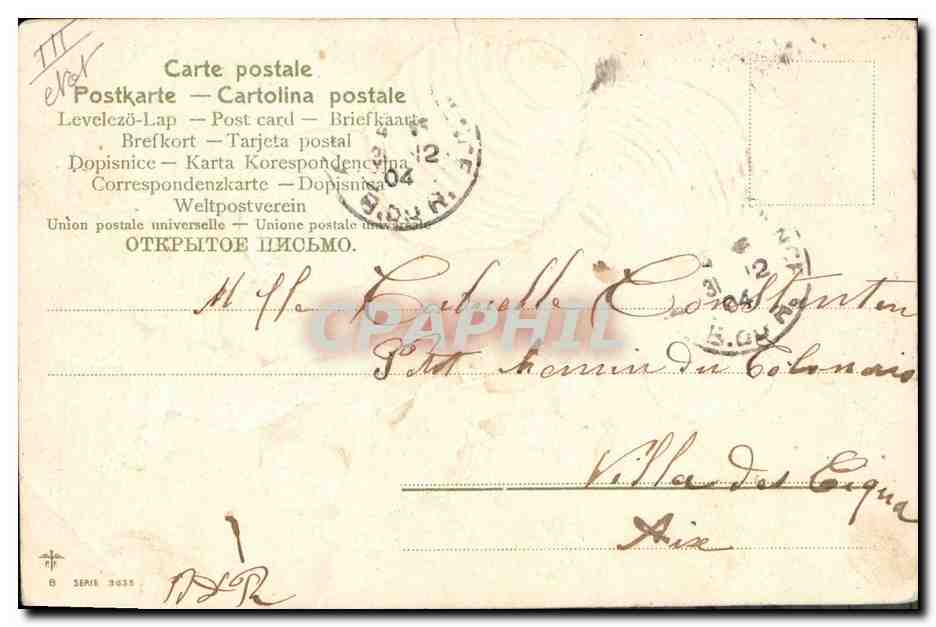 III
Carte postale
Postkarte — Cartolina postale
Levelező-Lap — Post card — Briefkaart
Brefkort — Tarjeta postal
Dopisnice — Karta Korespondencyjna
Correspondenzkarte — Dopisnica
Weltpostverein
Union postale universelle — Unione postale universale
ОТКРЫТОЕ ПИСЬМО.
12
04
B. DU R.
12
04
B. DU R.
Mlle Constanten
CPAPHIL
du
Villa des
Aix
B SERIE 3635